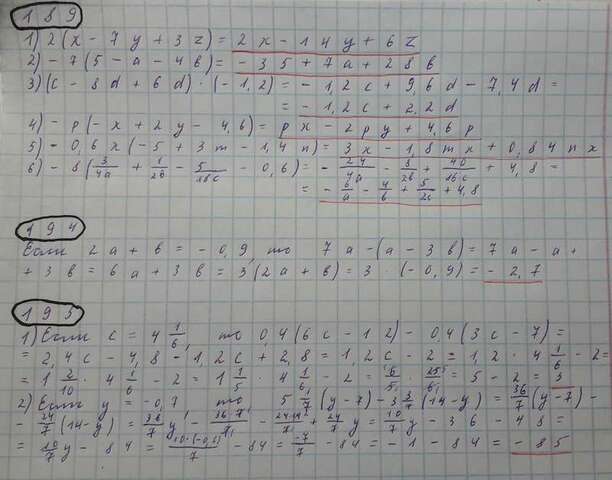 189
1) 2(x - 7y + 3z) = 2x - 14y + 6z
2) -7(5 - a - 4b) = -35 + 7a + 28b
3) (c - 8d + 6d) · (-1,2) = -1,2c + 9,6d - 7,4d =
= -1,2c + 2,2d
4) -p(-x + 2y - 4,6) = px - 2py + 4,6p
5) -0,6x(-5 + 3m - 1,4n) = 3x - 1,8mx + 0,84nx
6) -8(3/4a + 1/2b - 5/16c - 0,6) = -24/4a - 8/2b + 40/16c + 4,8 =
= -6/a - 4/b + 5/2c + 4,8
194
Если 2a + b = -0,9, то 7a - (a - 3b) = 7a - a +
+ 3b = 6a + 3b = 3(2a + b) = 3 · (-0,9) = -2,7
195
1) Если c = 4 1/6, то 0,4(6c - 12) - 0,4(3c - 7) =
= 2,4c - 4,8 - 1,2c + 2,8 = 1,2c - 2 = 1,2 · 4 1/6 - 2 =
= 1 2/10 · 4 1/6 - 2 = 1 1/5 · 4 1/6 - 2 = 6/5 · 25/6 = 5 - 2 = 3
2) Если y = -0,7 то 5 1/7(y - 7) - 3 3/7(14 - y) = 36/7(y - 7) -
- 24/7(14 - y) = 36/7y - 36·7/7 - 24·14/7 + 24/7y = 10/7y - 36 - 48 =
= 10/7y - 84 = 7 - 84 = -7/7 - 84 = -1 - 84 = -85